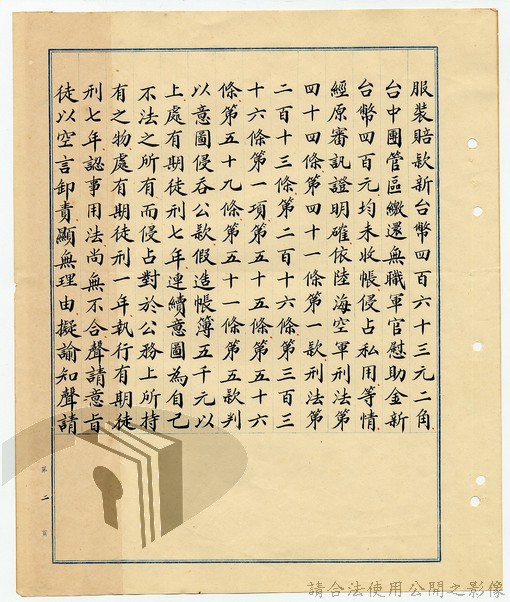 服裝賠款新台幣四百六十三元二角
台中團管區繳還無職軍官慰助金新
台幣四百元均未收帳侵占私用等情
經原審訊證明確依陸海空軍刑法第
四十四條第四十一條第一款刑法第
二百十三條第二百十六條第三百三
十六條第一項第五十五條第五十六
條第五十九條第五十一條第五款判
以意圖侵吞公款假造帳簿五千元以
上處有期徒刑七年連續意圖為自己
不法之所有而侵占對於公務上所持
有之物處有期徒刑一年執行有期徒
刑七年認事用法尚無不合聲請意旨
徒以空言卸責顯無理由擬諭知聲請
第二頁
請合法使用公開之影像